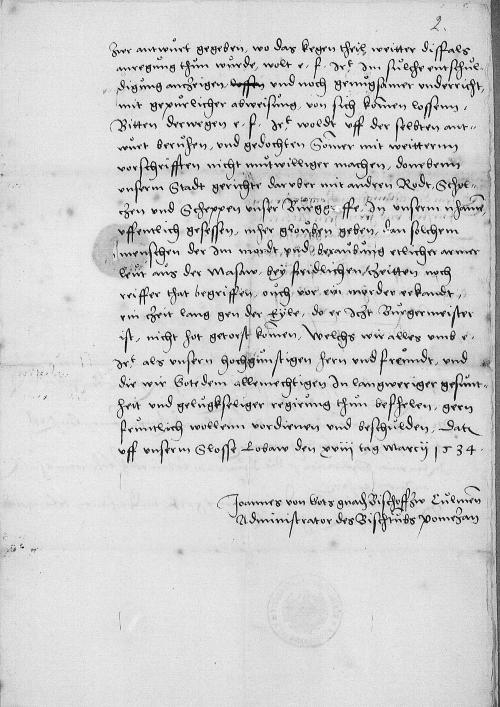 2.
zwr antwurt gegeben, wo das kegen theil weitter diffals
anregung thun wurde, wolt e. f. im sulche entschul-
digung anzeigen, lossen und noch genugsamer underricht,
mit gepurlicher abweisung von sich komen lossenn.
Bitten derwegen e. f. woldt uff der selbten ant-
wurt beruhen, und gedochten Somer mit weitterm
vorschrifften nicht mutwilliger machen, donebenn
unserm Stadt gerichte daruber mit andern Rodt, Schol-
tzen und Scheppen unser Burggreffe, In unserm
offentlich gesessen, mher glouben geben, dan solchem
menschen der im mordt und beraubung etlicher armer
leut aus der Masaw, bey fridlichen tzeitten noch
reiffer that begriffen, ouch vor eyn morder erkandt,
ein zeit lang gen der Eyle, do er itzt Burgermeister
ist, nicht hot getorst komen, Welchs wir alles umb e.
als unsern hochgunstigen hern und freundt, und
die wir Gote dem allmechtigen In langweriger gesunt-
heit und gelugkseliger regirung thun befhelen, gern
freuntlich wollenn vordienen und beschulden. Dat
uff unserm Slosse Lobaw den xviii tag Marcii 1534.
Joannes von Gots gnad Bischoff zw Culmen
Administrator des Bischtubs pomezan